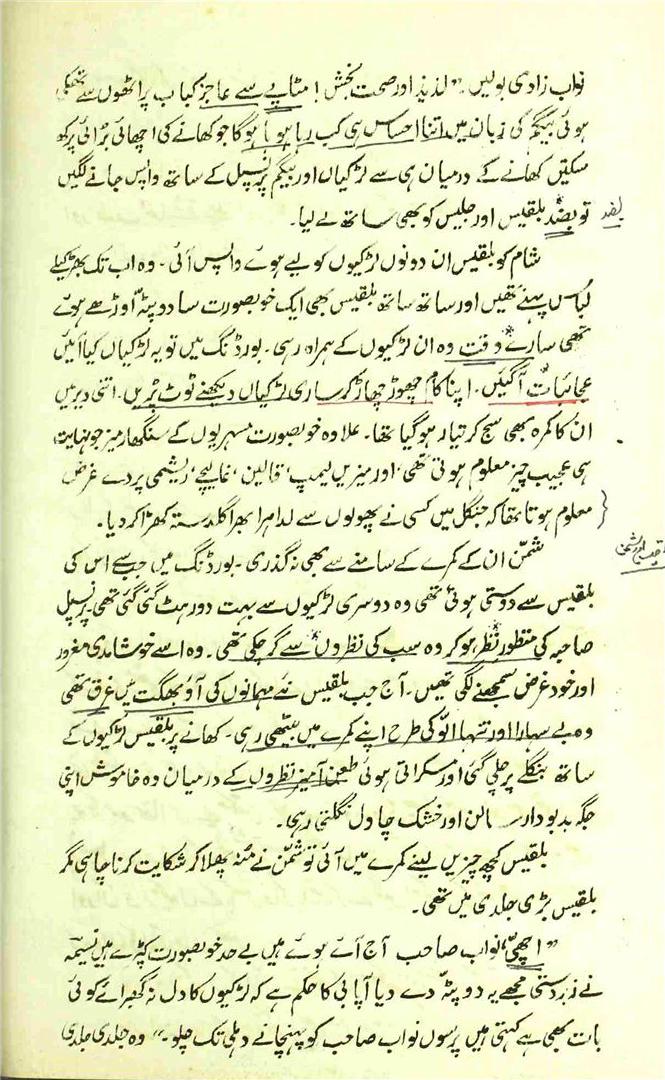 نواب زادی بولیں۔ ”لذیذ اور صحت بخش! مٹاپے سے عاجز کباب پراٹھوں سے تھکی
ہوئی بیگم کی زبان میں اتنا احساس ہی کب رہا ہو گا جو کھانے کی اچھائی برائی پرکھ
سکتیں کھانے کے درمیان ہی سے لڑکیاں اور بیگم پرنسپل کے ساتھ واپس جانے لگیں
تو بضد بلقیس اور جلیس کو بھی ساتھ لے لیا۔
شام کو بلقیس ان دونوں لڑکیوں کو لیے ہوئے واپس آئی۔ وہ اب تک بھڑکیلے
لباس پہنے تھیں اور ساتھ ساتھ بلقیس بھی ایک خوبصورت سا دوپٹہ اوڑھے ہوئے
تھی سارے وقت وہ ان لڑکیوں کے ہمراہ رہی۔ بورڈنگ میں تو یہ لڑکیاں کیا آئیں
عجائبات آگئیں۔ اپنا کام چھوڑ چھاڑ کر ساری لڑکیاں دیکھنے ٹوٹ پڑیں۔ اتنی دیر میں
ان کا کمرہ بھی سج کر تیار ہو گیا تھا۔ علاوہ خوبصورت مسہریوں کے سنگھار میز جو نہایت
ہی عجیب چیز معلوم ہوتی تھی، اور میزیں لیمپ، قالین، غالیچے، ریشمی پردے غرض
معلوم ہوتا تھا کہ جنگل میں کسی نے پھولوں سے لدا ہرا بھرا گلدستہ کھڑا کر دیا۔
شمّن ان کے کمرے کے سامنے سے بھی نہ گذری۔ بورڈنگ میں جب سے اس کی
بلقیس سے دوستی ہوئی تھی وہ دوسری لڑکیوں سے بہت دور ہٹ گئی گئی تھی۔ پرنسپل
صاحبہ کی منظورِ نظر ہو کر وہ سب کی نظروں سے گر چکی تھی۔ وہ اسے خوشامدی مغرور
اور خود غرض سمجھنے لگی تھیں۔ آج جب بلقیس نئے مہمانوں کی آؤ بھگت میں غرق تھی
وہ بے سہارا اور تنہا الّو کی طرح اپنے کمرے میں بیٹھی رہی۔ کھانے پر بلقیس لڑکیوں کے
ساتھ بنگلے پر چلی گئی اور مسکراتی ہوئی طعن آمیز نظروں کے درمیان وہ خاموش اپنی
جگہ بدبودار سالن اور خشک چاول نگلتی رہی۔
بلقیس کچھ چیزیں لینے کمرے میں آئی تو شمّن نے منہ پھلا کر شکایت کرنا چاہی مگر
بلقیس بڑی جلدی میں تھی۔
”اچھی، نواب صاحب آج آئے ہوئے ہیں بے حد خوبصورت کپڑے ہیں نسیمہ
نے زبردستی مجھے یہ دوپٹہ دے دیا آپا بی کا حکم ہے کہ لڑکیوں کا دل نہ گھبرائے کوئی
بات بھی ہے کہتی ہیں پرسوں نواب صاحب کو پہنچانے دہلی تک چلو۔“ وہ جلدی جلدی